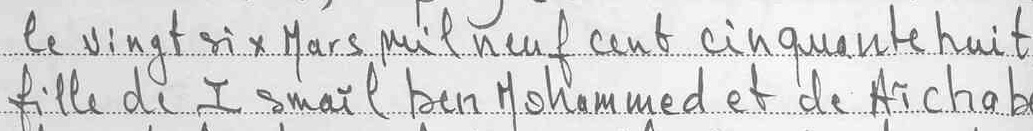 le vingt six Mars mil neuf cent cinquante huit
fille de Ismaïl ben Mohammed et de Aïcha